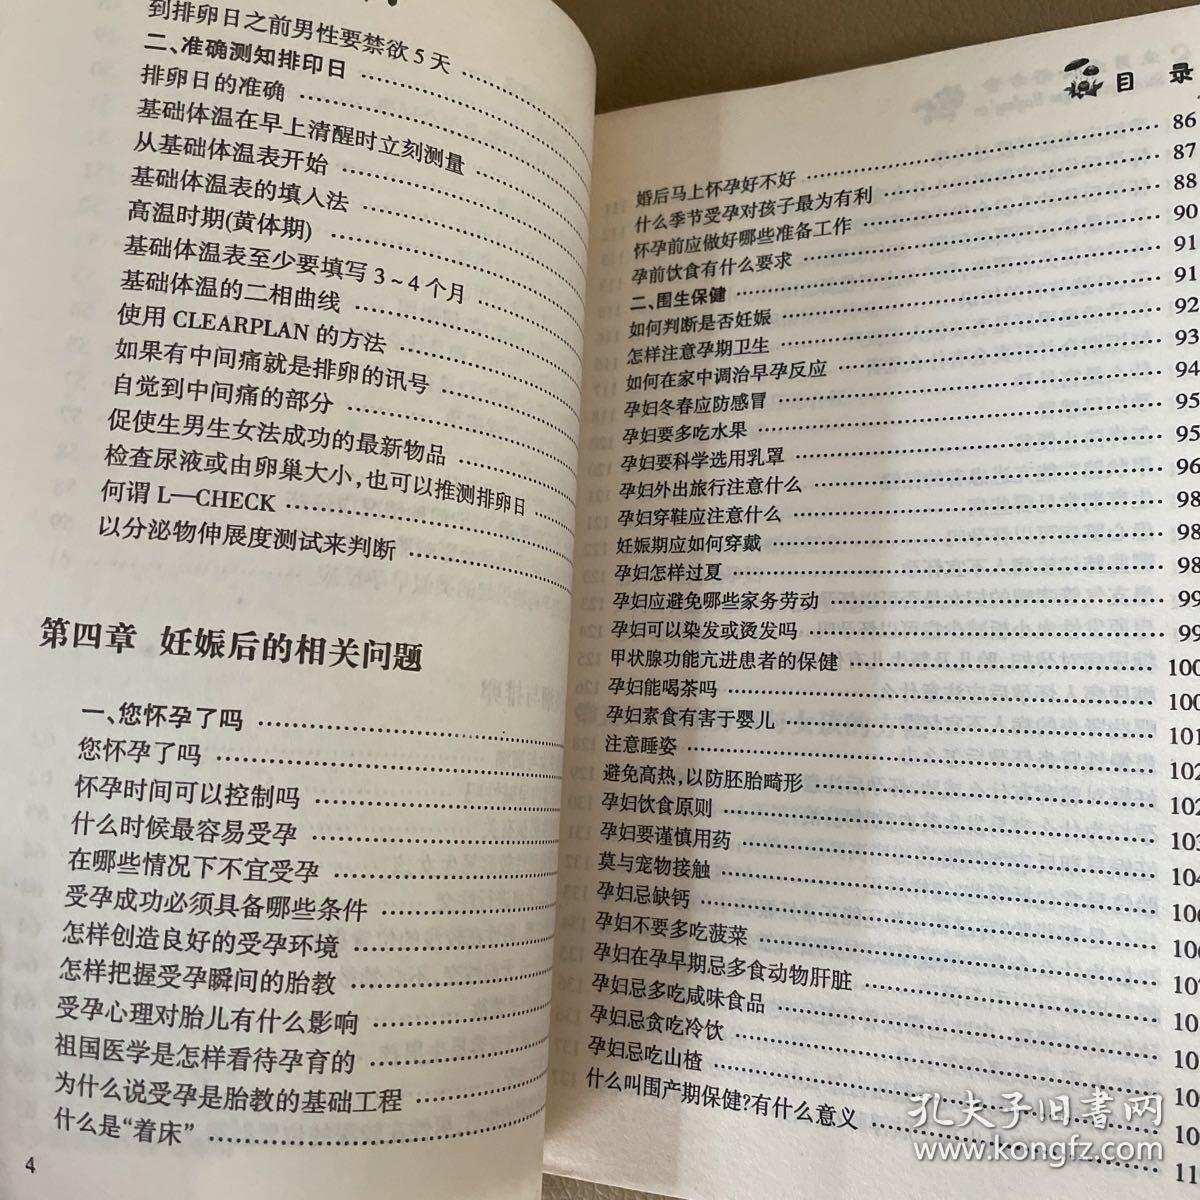 到排卵日之前男性要禁欲5天
二、准确测知排印日
排卵日的准确
基础体温在早上清醒时立刻测量
从基础体温表开始
基础体温表的填人法
高温时期(黄体期)
基础体温表至少要填写3~4个月
基础体温的二相曲线
使用CLEARPLAN的方法
如果有中间痛就是排卵的讯号
自觉到中间痛的部分
促使生男生女法成功的最新物品
检查尿液或由卵巢大小,也可以推测排卵日
何谓L—CHECK
以分泌物伸展度测试来判断
第四章 妊娠后的相关问题
一、您怀孕了吗
您怀孕了吗
怀孕时间可以控制吗
什么时候最容易受孕
在哪些情况下不宜受孕
受孕成功必须具备哪些条件
怎样创造良好的受孕环境
怎样把握受孕瞬间的胎教
受孕心理对胎儿有什么影响
祖国医学是怎样看待孕育的
为什么说受孕是胎教的基础工程
什么是“着床”
4
目 录
婚后马上怀孕好不好 86
什么季节受孕对孩子最为有利 87
怀孕前应做好哪些准备工作 88
孕前饮食有什么要求 90
二、围生保健 91
如何判断是否妊娠 91
怎样注意孕期卫生 92
如何在家中调治早孕反应 93
孕妇冬春应防感冒 94
孕妇要多吃水果 95
孕妇要科学选用乳罩 95
孕妇外出旅行注意什么 96
孕妇穿鞋应注意什么 98
妊娠期应如何穿戴 98
孕妇怎样过夏 98
孕妇应避免哪些家务劳动 99
孕妇可以染发或烫发吗 99
甲状腺功能亢进患者的保健 100
孕妇能喝茶吗 100
孕妇素食有害于婴儿 101
注意睡姿 102
避免高热,以防胚胎畸形 102
孕妇饮食原则 103
孕妇要谨慎用药 104
莫与宠物接触
孕妇忌缺钙
孕妇不要多吃菠菜
孕妇在孕早期忌多食动物肝脏
孕妇忌多吃咸味食品
孕妇忌贪吃冷饮
孕妇忌吃山楂
什么叫围产期保健?有什么意义
孔夫子旧书网
www.kongfz.com